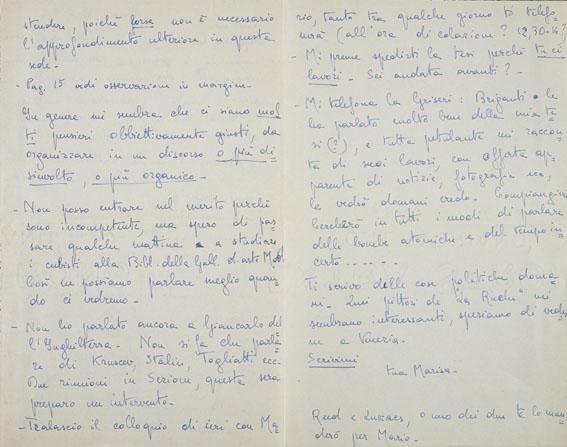 stendere, poiché forse non è necessario
l'approfondimento ulteriore in questa
sede -
- Pag. 15 vedi osservazione in margine -
In genere mi sembra che ci siano mol
ti pensieri obbiettivamente giusti, da
organizzare in un discorso o più di
sinvolto, o più organico -
- Non posso entrare nel merito perché
sono incompetente, ma spero di pas
sare qualche mattina a studiare
i cubisti alla Bibl. della Gall. d'arte Mod.
Così ne possiamo parlare meglio quan
do ci vedremo -
- Non ho parlato ancora a Giancarlo del
l'Inghilterra - Non si fa che parla
re di Kruscev, Stalin, Togliatti ecc.
Due riunioni in Sezione, questa sera
preparo un intervento -
- Tralascio il colloquio di ieri con Ma
rio, tanto tra qualche giorno ti telefo
nerà (all'ora di colazione? 12,30-14?)
- Mi preme spedirti la tesi perché tu ci
lavori - Sei andata avanti? -
- Mi telefona la Griseri: Briganti le
ha parlato molto bene della mia te
si (?), e tutta petulante mi raccon
ta di suoi lavori, con offerta ap
parente di notizie, fotografie ecc,
la vedrò domani credo. Compiangimi
Cercherò in tutti i modi di parlare
delle bombe atomiche e del tempo in
certo ......
Ti scrivo delle cose politiche doma
ni. Quei pittori de "La Ruche" mi
sembrano interessanti, speriamo di veder
ne a Venezia.
Scrivimi
tua Marisa -
Read e Lukacs, o uno dei due te lo man
derò per Mario -